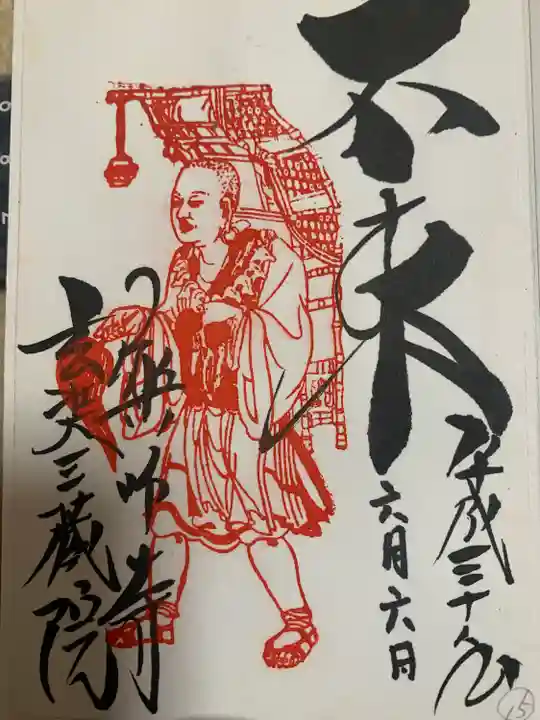 不東
平成三十年
六月六日
薬師寺
玄奘三蔵院
15